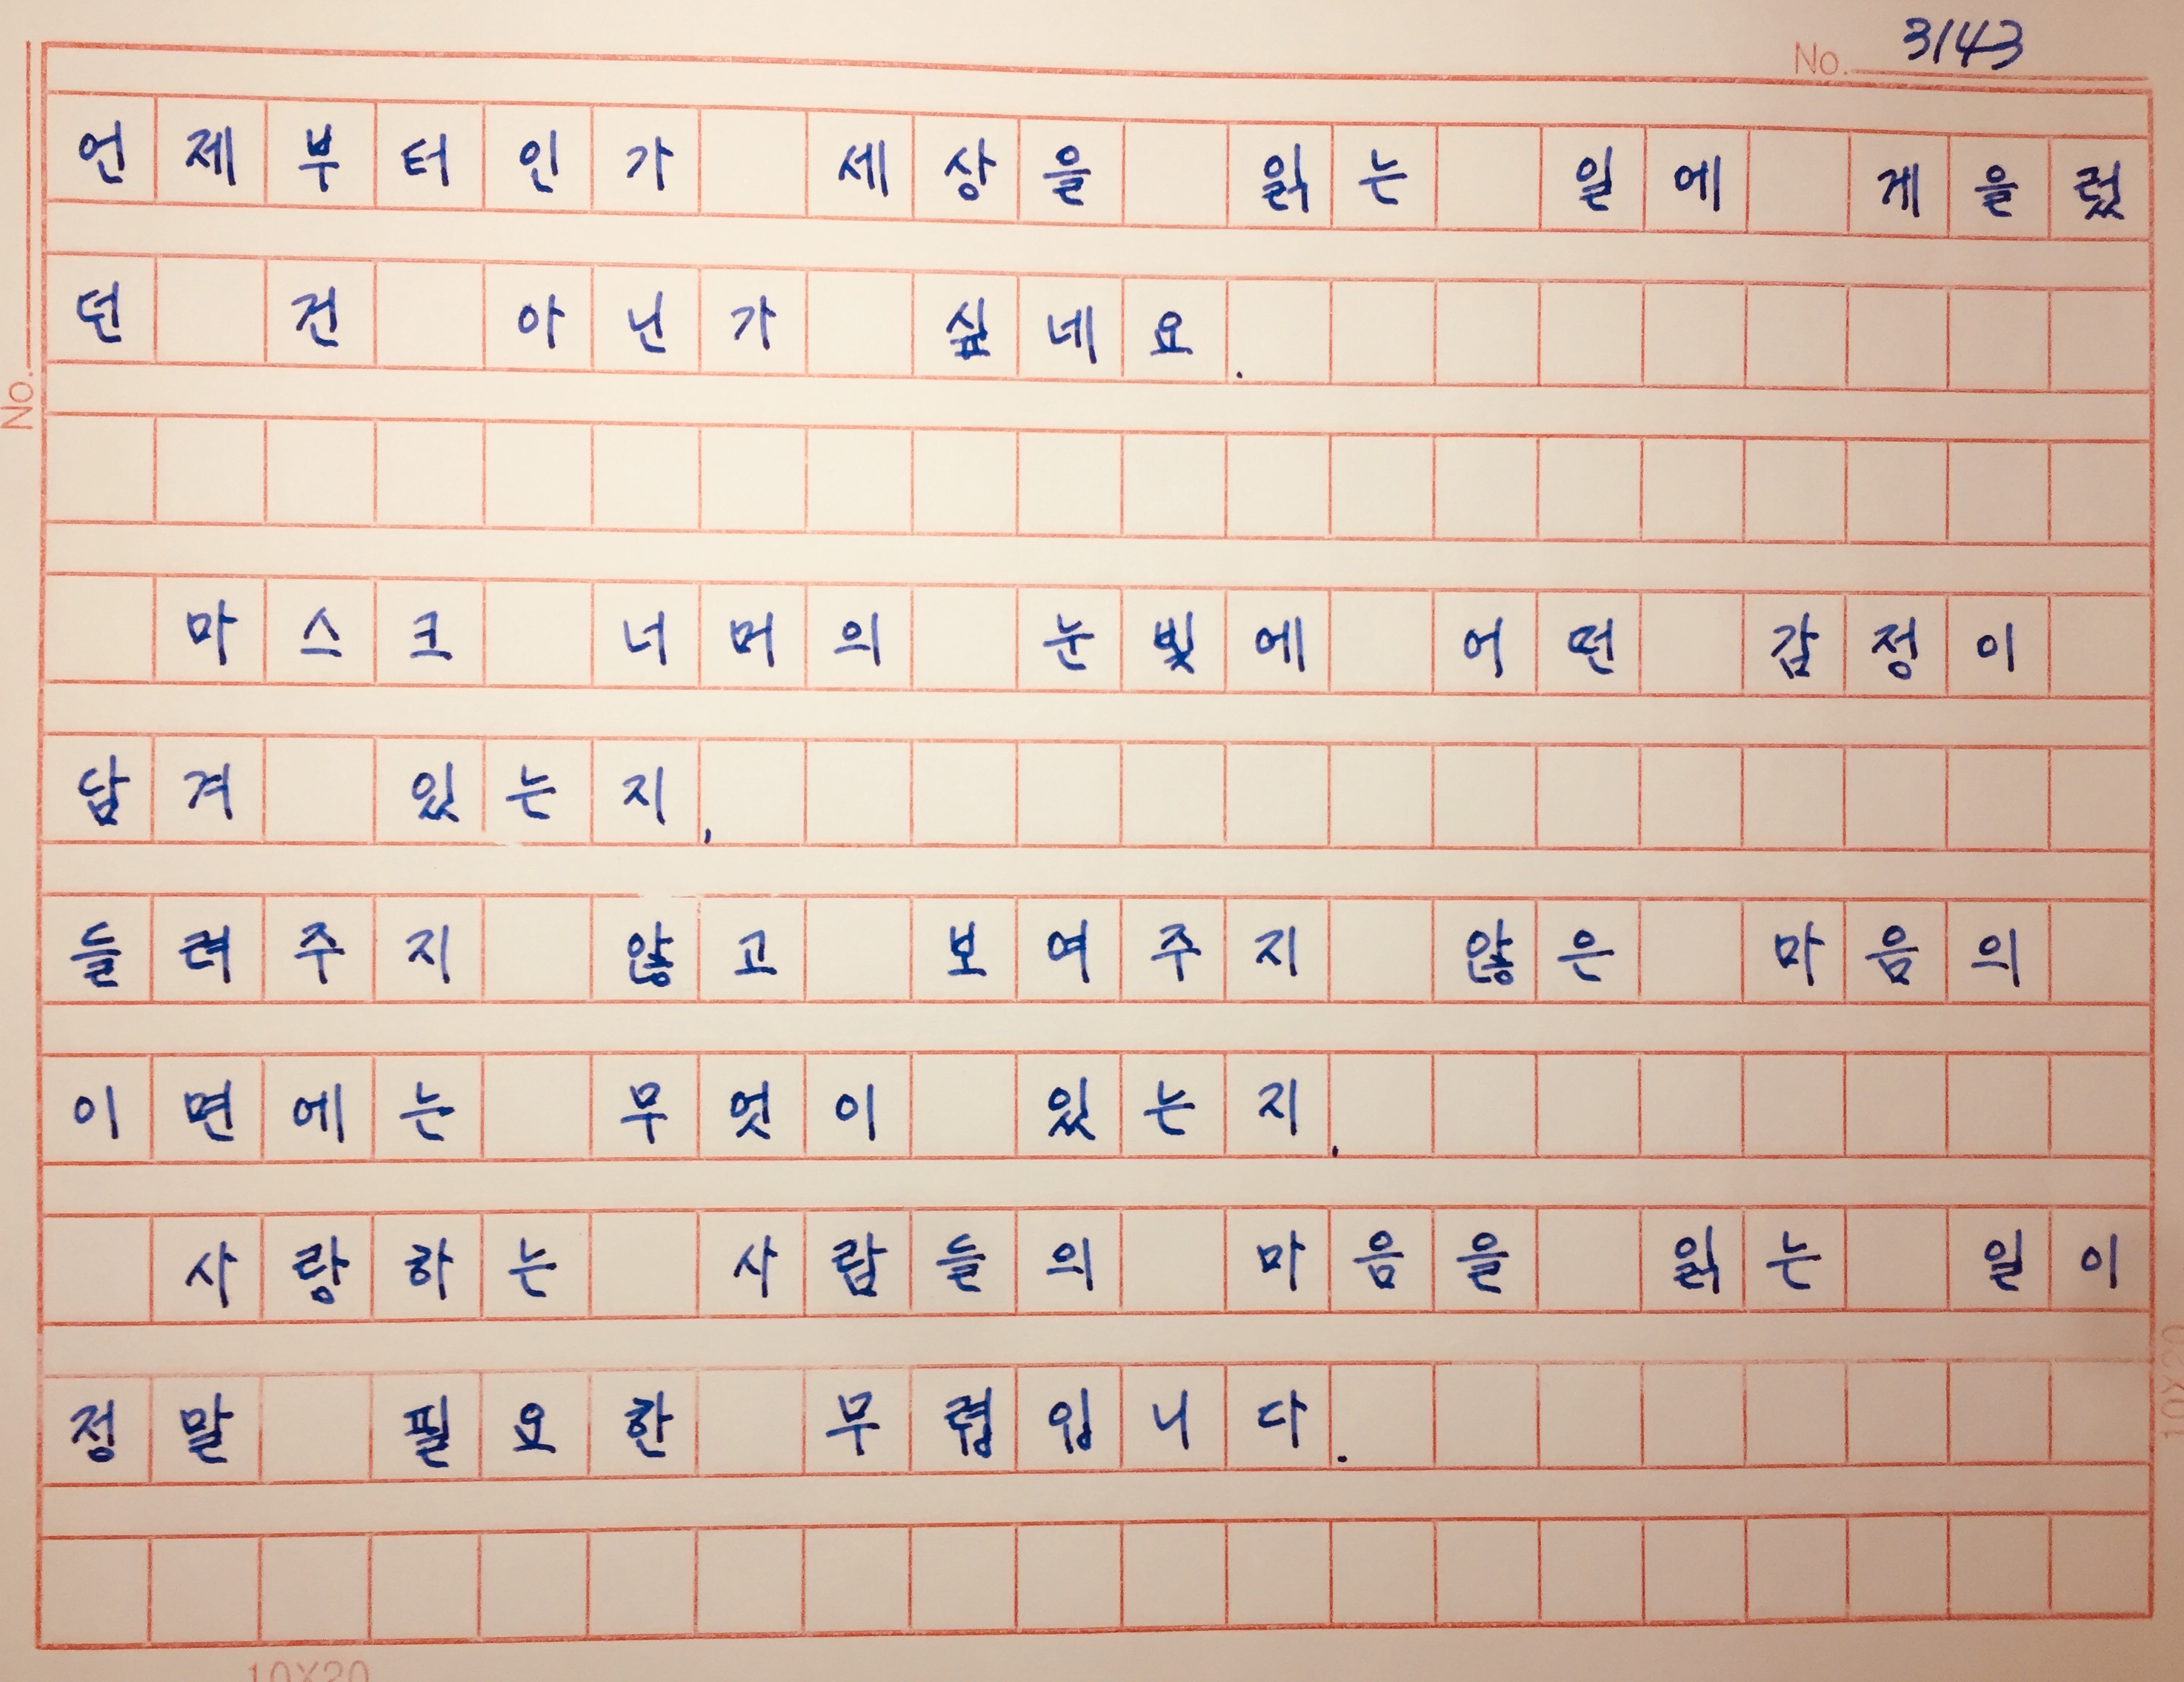 No. 3143
언제부터인가 세상을 읽는 일에 게을렀
던 건 아닌가 싶네요.
No.
마스크 너머의 눈빛에 어떤 감정이
담겨 있는지,
들려주지 않고 보여주지 않은 마음의
이면에는 무엇이 있는지.
사랑하는 사람들의 마음을 읽는 일이
정말 필요한 무렵입니다.
10X20
10X20